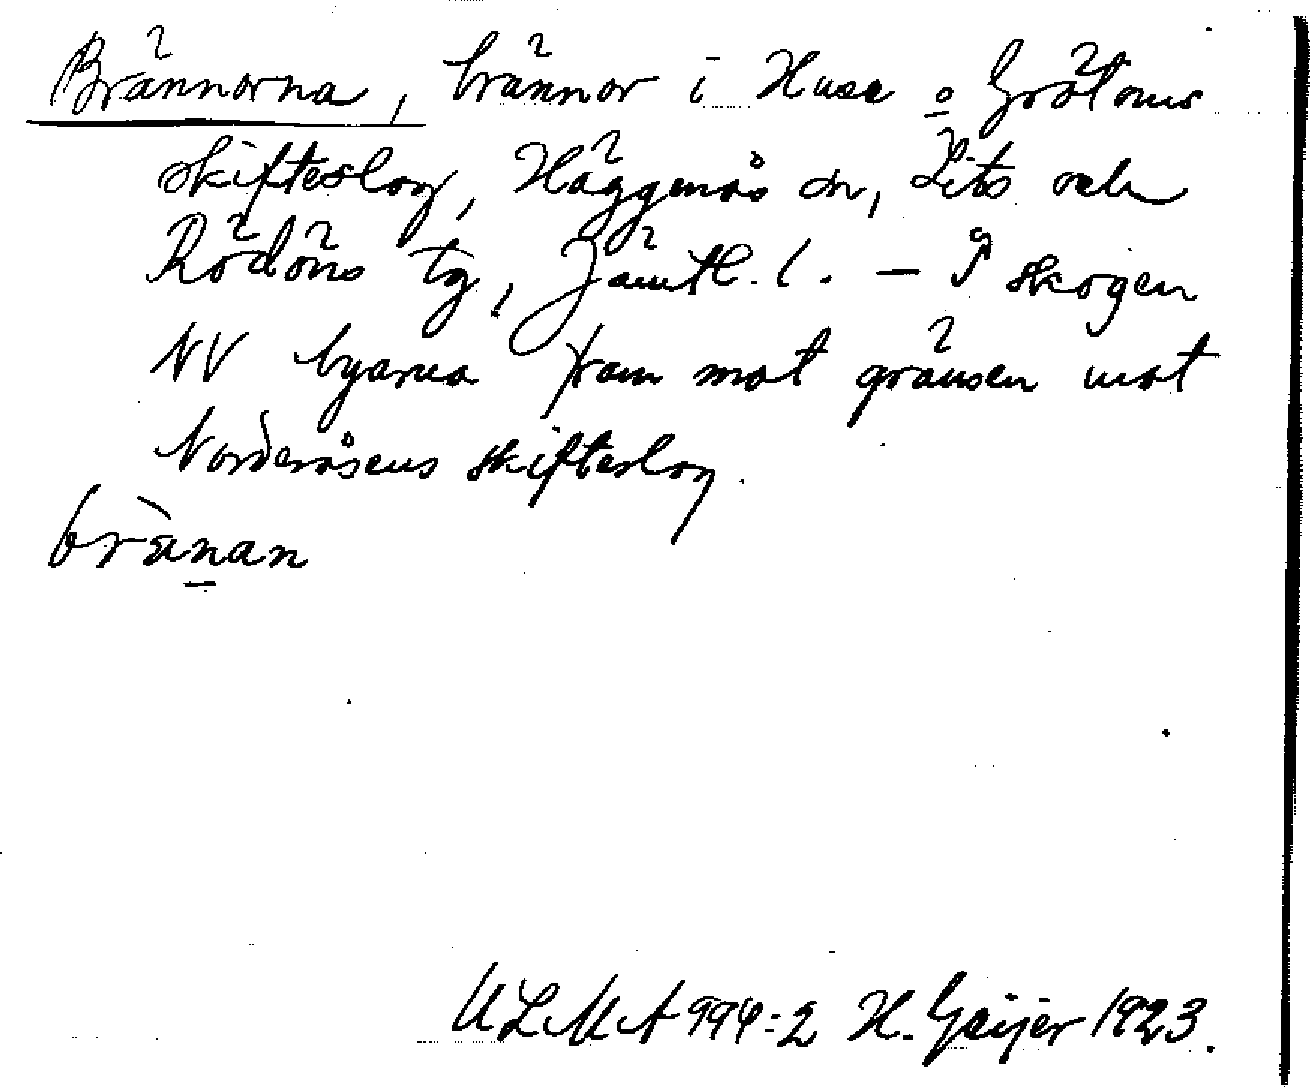 Brännorna, brännor i Huse o Grötoms
skifteslog, Häggenås sn, Lits och
Rödöns tg, Jämtl. l. – I skogen
NV byarna fram mot gränsen mot
Norderåsens skifteslog.
brä̀nan
ULMA 994:2 H. Geijer 1923.